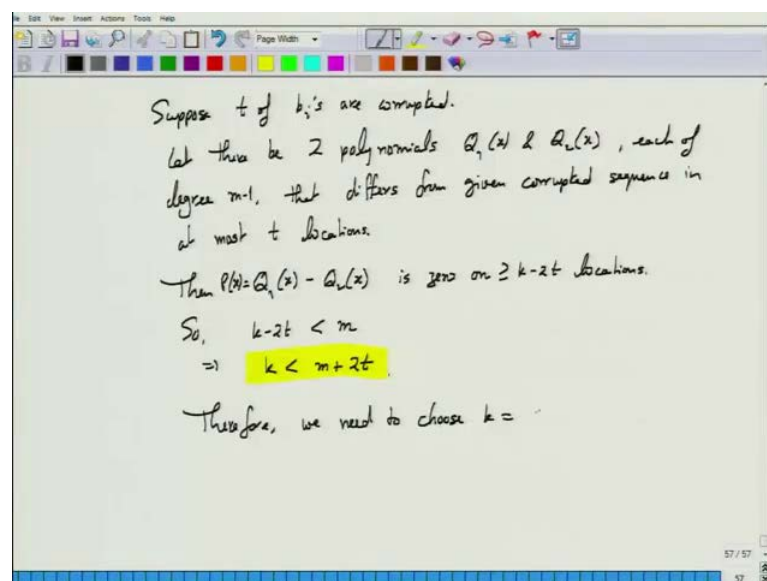 le Edit View Insert Actions Tools Help
Page Width
Suppose t of bᵢ's are corrupted.
Let there be 2 polynomials Q₁(x) & Q₂(x), each of
degree m-1, that differs from given corrupted sequence in
at most t locations.
Then P(x) = Q₁(x) - Q₂(x) is zero on ≥ k-2t locations.
So, k-2t < m
=> k < m+2t.
Therefore, we need to choose k =
57 / 57
57